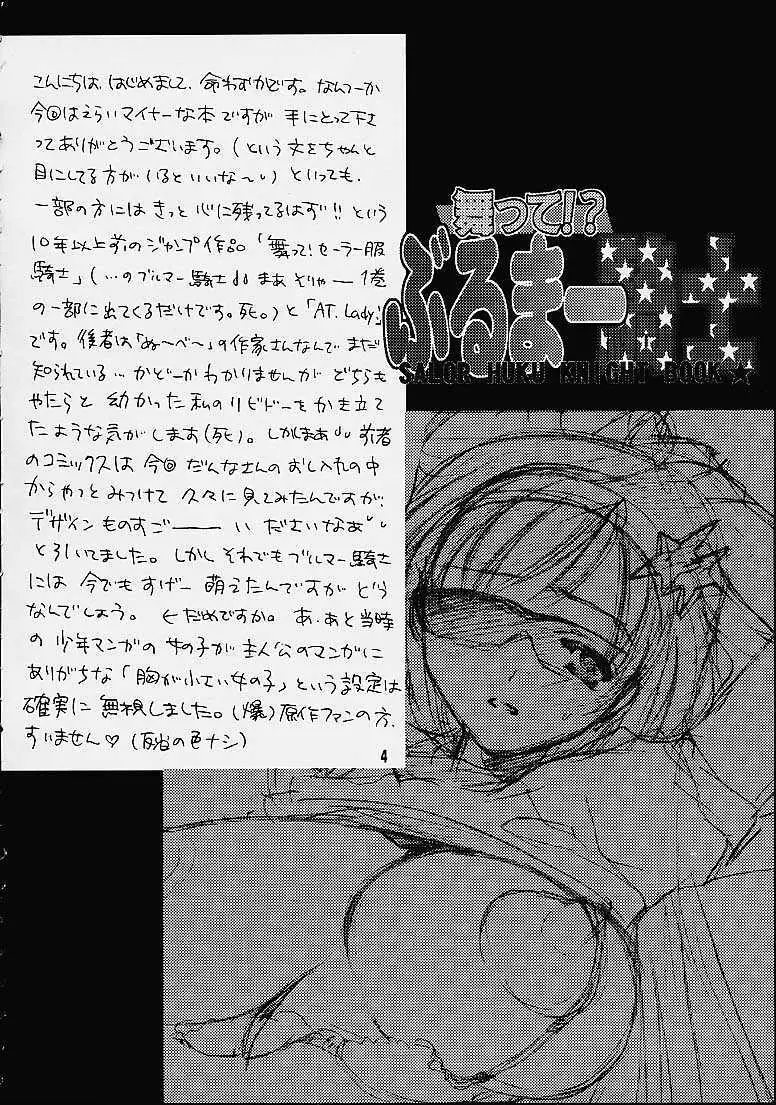 こんにちは、はじめまして、命わずかです。なんつーか
今回はえらいマイナーな本ですが 手にとって下さ
ってありがとうございます。(という文をちゃんと
目にしてる方が いるといいな〜い) といっても、
一部の方には きっと 心に残ってるはず!! という
10年以上前のジャンプ作品「舞って!セーラー服
騎士」(…のブルマー騎士 まあ そりゃー1巻
の一部に出てくるだけです。死。)と「AT. Lady」
です。後者は「ぬ〜べ〜」の作家さんなんで まだ
知られている…かどーか わかりませんが どちらも
やたらと 幼かった 私のリビドーを かき立て
たような気がします(死)。しかしまあ 前者
のコミックスは 今回 だんなさんの おし入れの中
からやっとみつけて 久々に見てみたんですが、
デザイン ものすごーーーい ださいなあ
とろいてました。しかし それでも ブルマー騎士
には 今でも すげー 萌えたんですが どう
なんでしょう。 ←だめですか。あ、あと 当時
の 少年マンガの 女の子が 主人公のマンガに
ありがちな「胸が小さい女の子」という設定は
確実に 無視しました。(爆)原作ファンの方、
すいません♡(反省の色ナシ)
4
舞って!?
ぶるまー騎士
SALOR HUKU KNIGHT BOOK★